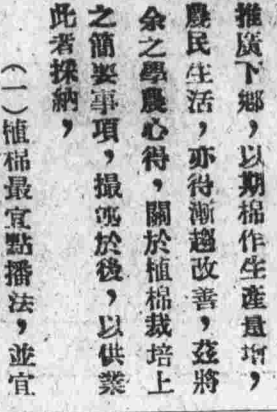 推廣下鄉，以期棉作生產量增，
農民生活，亦得漸趨改善，茲將
余之學農心得，關於植棉栽培上
之簡要事項，撮述於後，以供業
此者採納，
（一）植棉最宜點播法，並宜